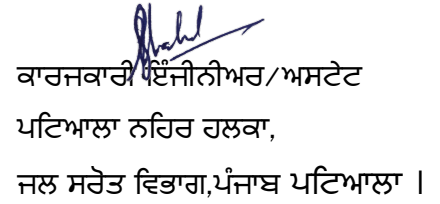 ਕਾਰਜਕਾਰੀ ਇੰਜੀਨੀਅਰ/ਅਸਟੇਟ
ਪਟਿਆਲਾ ਨਹਿਰ ਹਲਕਾ,
ਜਲ ਸਰੋਤ ਵਿਭਾਗ,ਪੰਜਾਬ ਪਟਿਆਲਾ |